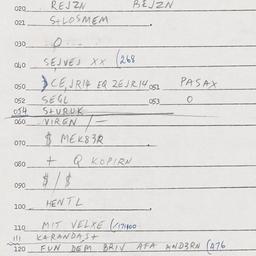 020 REJZN BEJZN
021 S+LOSMEM
030 Q
040 SEJVEJ XX (268
050 CE,JR14 EQ 2EJR14 051 PASAX
052 SEGL 053 O
054 S+URUK
060 VIREN /—
070 $ MEK83R
080 + Q KOPIRN
090 $/$
100 HENTL
110 MIT VELXE (171400
111 KARANDAS+
120 FUN DEM BRIV AFA AND3RN (476